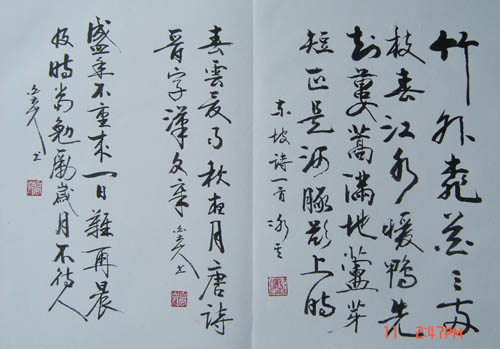 竹外桃花三两
枝春江水暖鴨先
知蔞蒿滿地蘆芽
短正是河豚欲上時
东坡诗一首
春雲夏雨秋夜月唐詩
晉字漢文章
盛年不重来一日難再晨
及時當勉勵歲月不待人
11 2:47PM